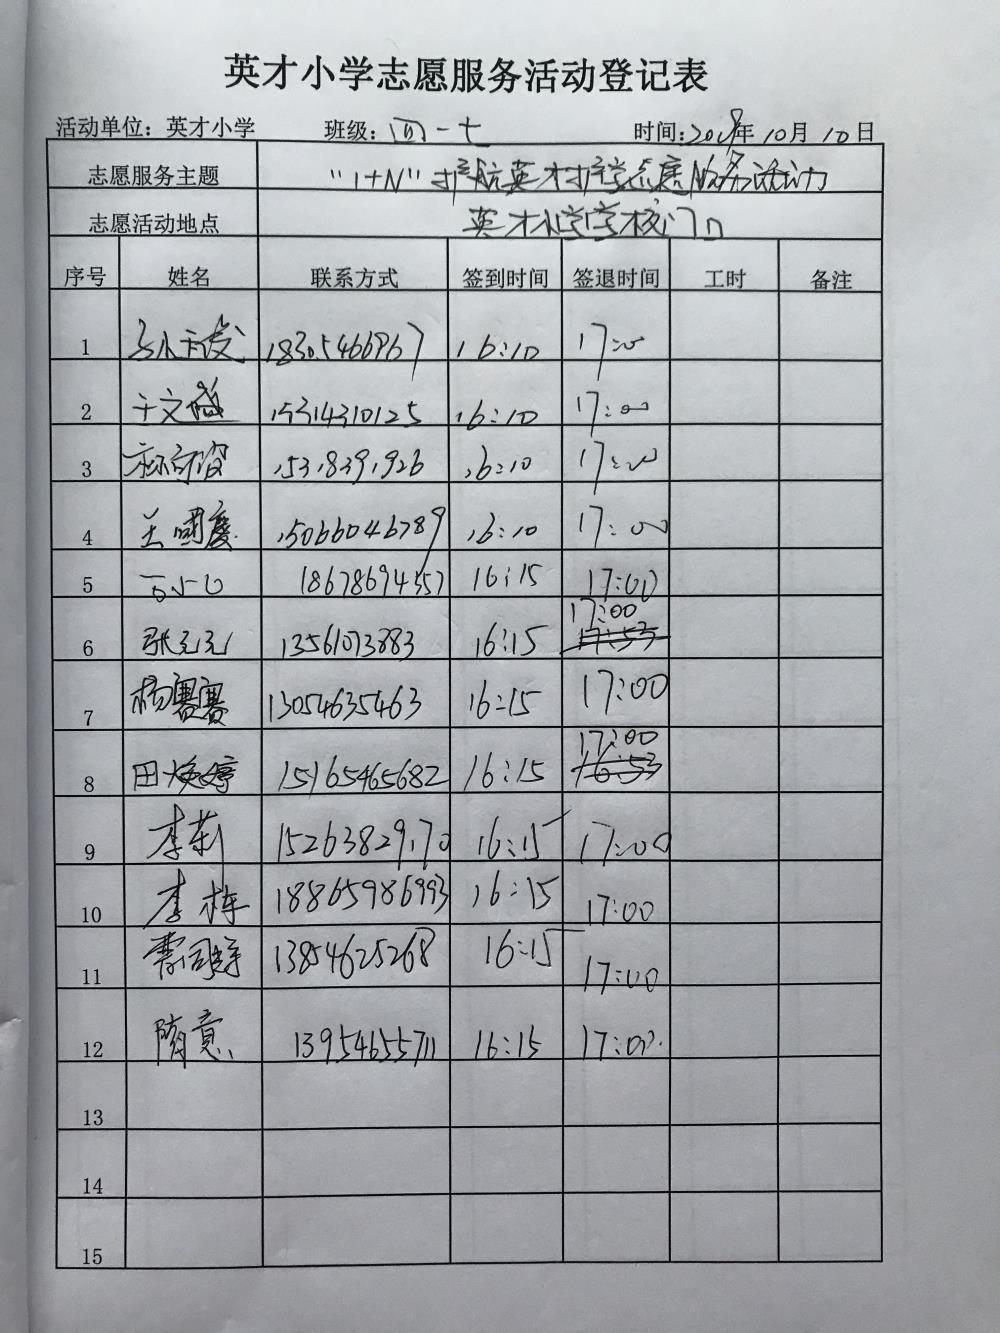 英才小学志愿服务活动登记表
活动单位：英才小学 班级：四一七 时间：年10月10日
志愿服务主题 "1+N"护航英才护学志愿服务活动
志愿活动地点 英才小学学校门口
序号 姓名 联系方式 签到时间 签退时间 工时 备注
1 16:10 17:00
2 于文盛 15314310125 16:10 17:00
3 15318391926 16:10 17:00
4 王国慶 15066046789 16:10 17:00
5 18678694357 16:15 17:00
6 张元元 13561073883 16:15 17:00
7 杨赛赛 13054635463 16:15 17:00
8 田焕婷 15165465682 16:15 17:00
9 李莉 15263829170 16:15 17:00
10 李栋 18865986993 16:15 17:00
11 13854625268 16:15 17:00
12 隋意 13954655711 16:15 17:00
13
14
15